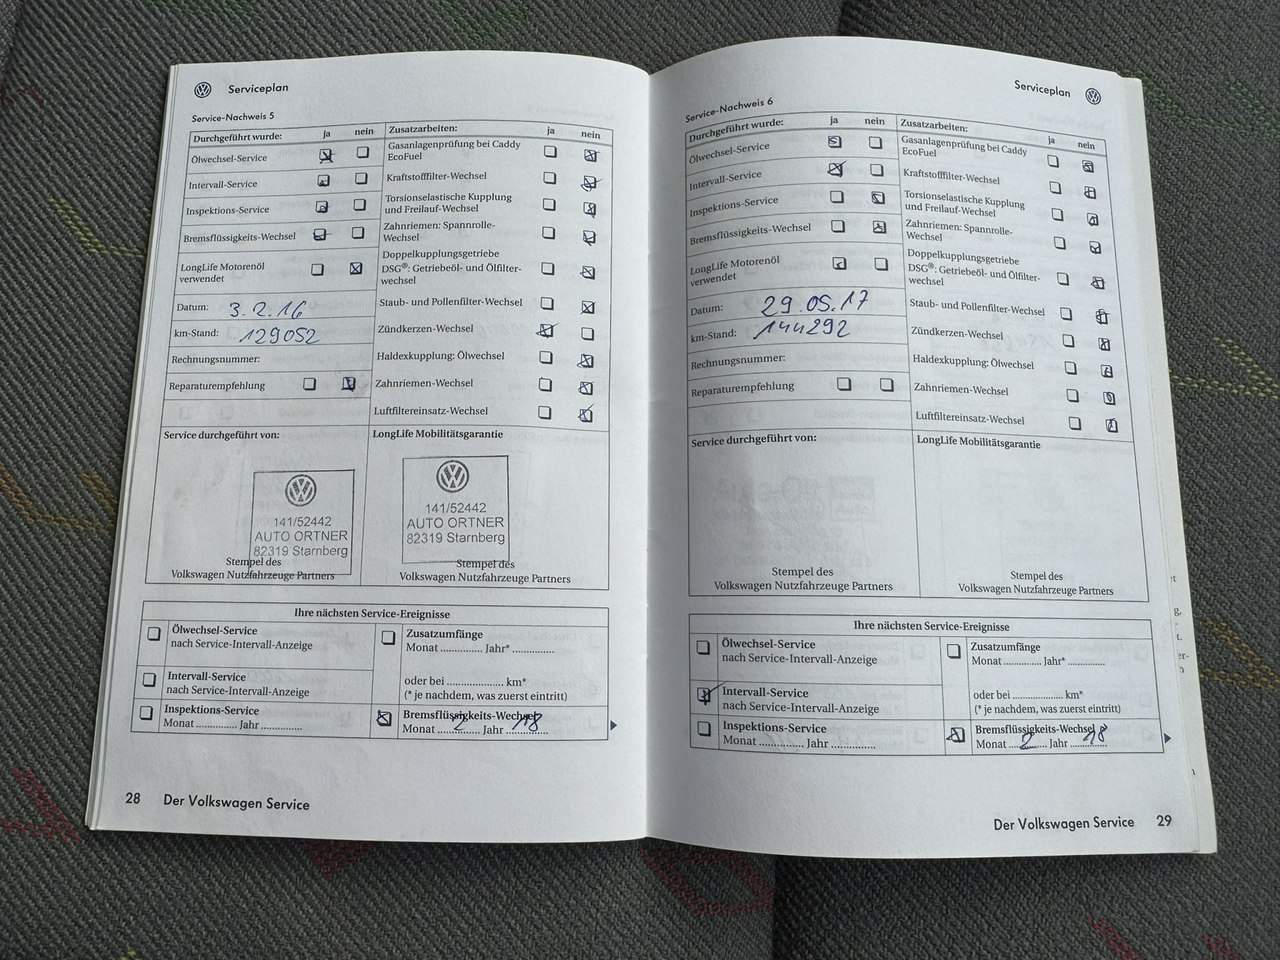 Serviceplan
Service-Nachweis 5
Durchgeführt wurde: ja nein
Ölwechsel-Service
Intervall-Service
Inspektions-Service
Bremsflüssigkeits-Wechsel
LongLife Motorenöl
verwendet
Datum: 3.2.16
km-Stand: 129052
Rechnungsnummer:
Reparaturempfehlung
Zusatzarbeiten: ja nein
Gasanlagenprüfung bei Caddy
EcoFuel
Kraftstofffilter-Wechsel
Torsionselastische Kupplung
und Freilauf-Wechsel
Zahnriemen: Spannrolle-
Wechsel
Doppelkupplungsgetriebe
DSG®: Getriebeöl- und Ölfilter-
wechsel
Staub- und Pollenfilter-Wechsel
Zündkerzen-Wechsel
Haldexkupplung: Ölwechsel
Zahnriemen-Wechsel
Luftfiltereinsatz-Wechsel
Service durchgeführt von:
141/52442
AUTO ORTNER
82319 Starnberg
Stempel des
Volkswagen Nutzfahrzeuge Partners
LongLife Mobilitätsgarantie
141/52442
AUTO ORTNER
82319 Starnberg
Stempel des
Volkswagen Nutzfahrzeuge Partners
Ihre nächsten Service-Ereignisse
Ölwechsel-Service
nach Service-Intervall-Anzeige
Intervall-Service
nach Service-Intervall-Anzeige
Inspektions-Service
Monat .............. Jahr ..............
Zusatzumfänge
Monat .............. Jahr* ..............
oder bei .................... km*
(* je nachdem, was zuerst eintritt)
Bremsflüssigkeits-Wechsel
Monat 2 Jahr 18
28 Der Volkswagen Service
Serviceplan
Service-Nachweis 6
Durchgeführt wurde: ja nein
Ölwechsel-Service
Intervall-Service
Inspektions-Service
Bremsflüssigkeits-Wechsel
LongLife Motorenöl
verwendet
Datum: 29.05.17
km-Stand: 144292
Rechnungsnummer:
Reparaturempfehlung
Zusatzarbeiten: ja nein
Gasanlagenprüfung bei Caddy
EcoFuel
Kraftstofffilter-Wechsel
Torsionselastische Kupplung
und Freilauf-Wechsel
Zahnriemen: Spannrolle-
Wechsel
Doppelkupplungsgetriebe
DSG®: Getriebeöl- und Ölfilter-
wechsel
Staub- und Pollenfilter-Wechsel
Zündkerzen-Wechsel
Haldexkupplung: Ölwechsel
Zahnriemen-Wechsel
Luftfiltereinsatz-Wechsel
Service durchgeführt von:
Stempel des
Volkswagen Nutzfahrzeuge Partners
LongLife Mobilitätsgarantie
Stempel des
Volkswagen Nutzfahrzeuge Partners
Ihre nächsten Service-Ereignisse
Ölwechsel-Service
nach Service-Intervall-Anzeige
Intervall-Service
nach Service-Intervall-Anzeige
Inspektions-Service
Monat .............. Jahr ..............
Zusatzumfänge
Monat .............. Jahr* ..............
oder bei .................... km*
(* je nachdem, was zuerst eintritt)
Bremsflüssigkeits-Wechsel
Monat 2 Jahr 18
Der Volkswagen Service 29